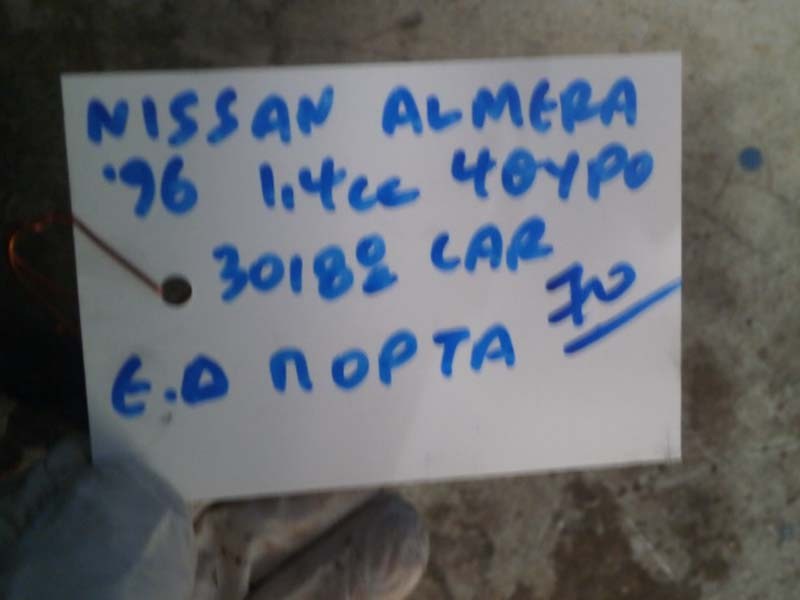 NISSAN ALMERA
'96 1,4cc 4ΘΥΡΟ
30182 CAR
70
Ε.Δ ΠΟΡΤΑ